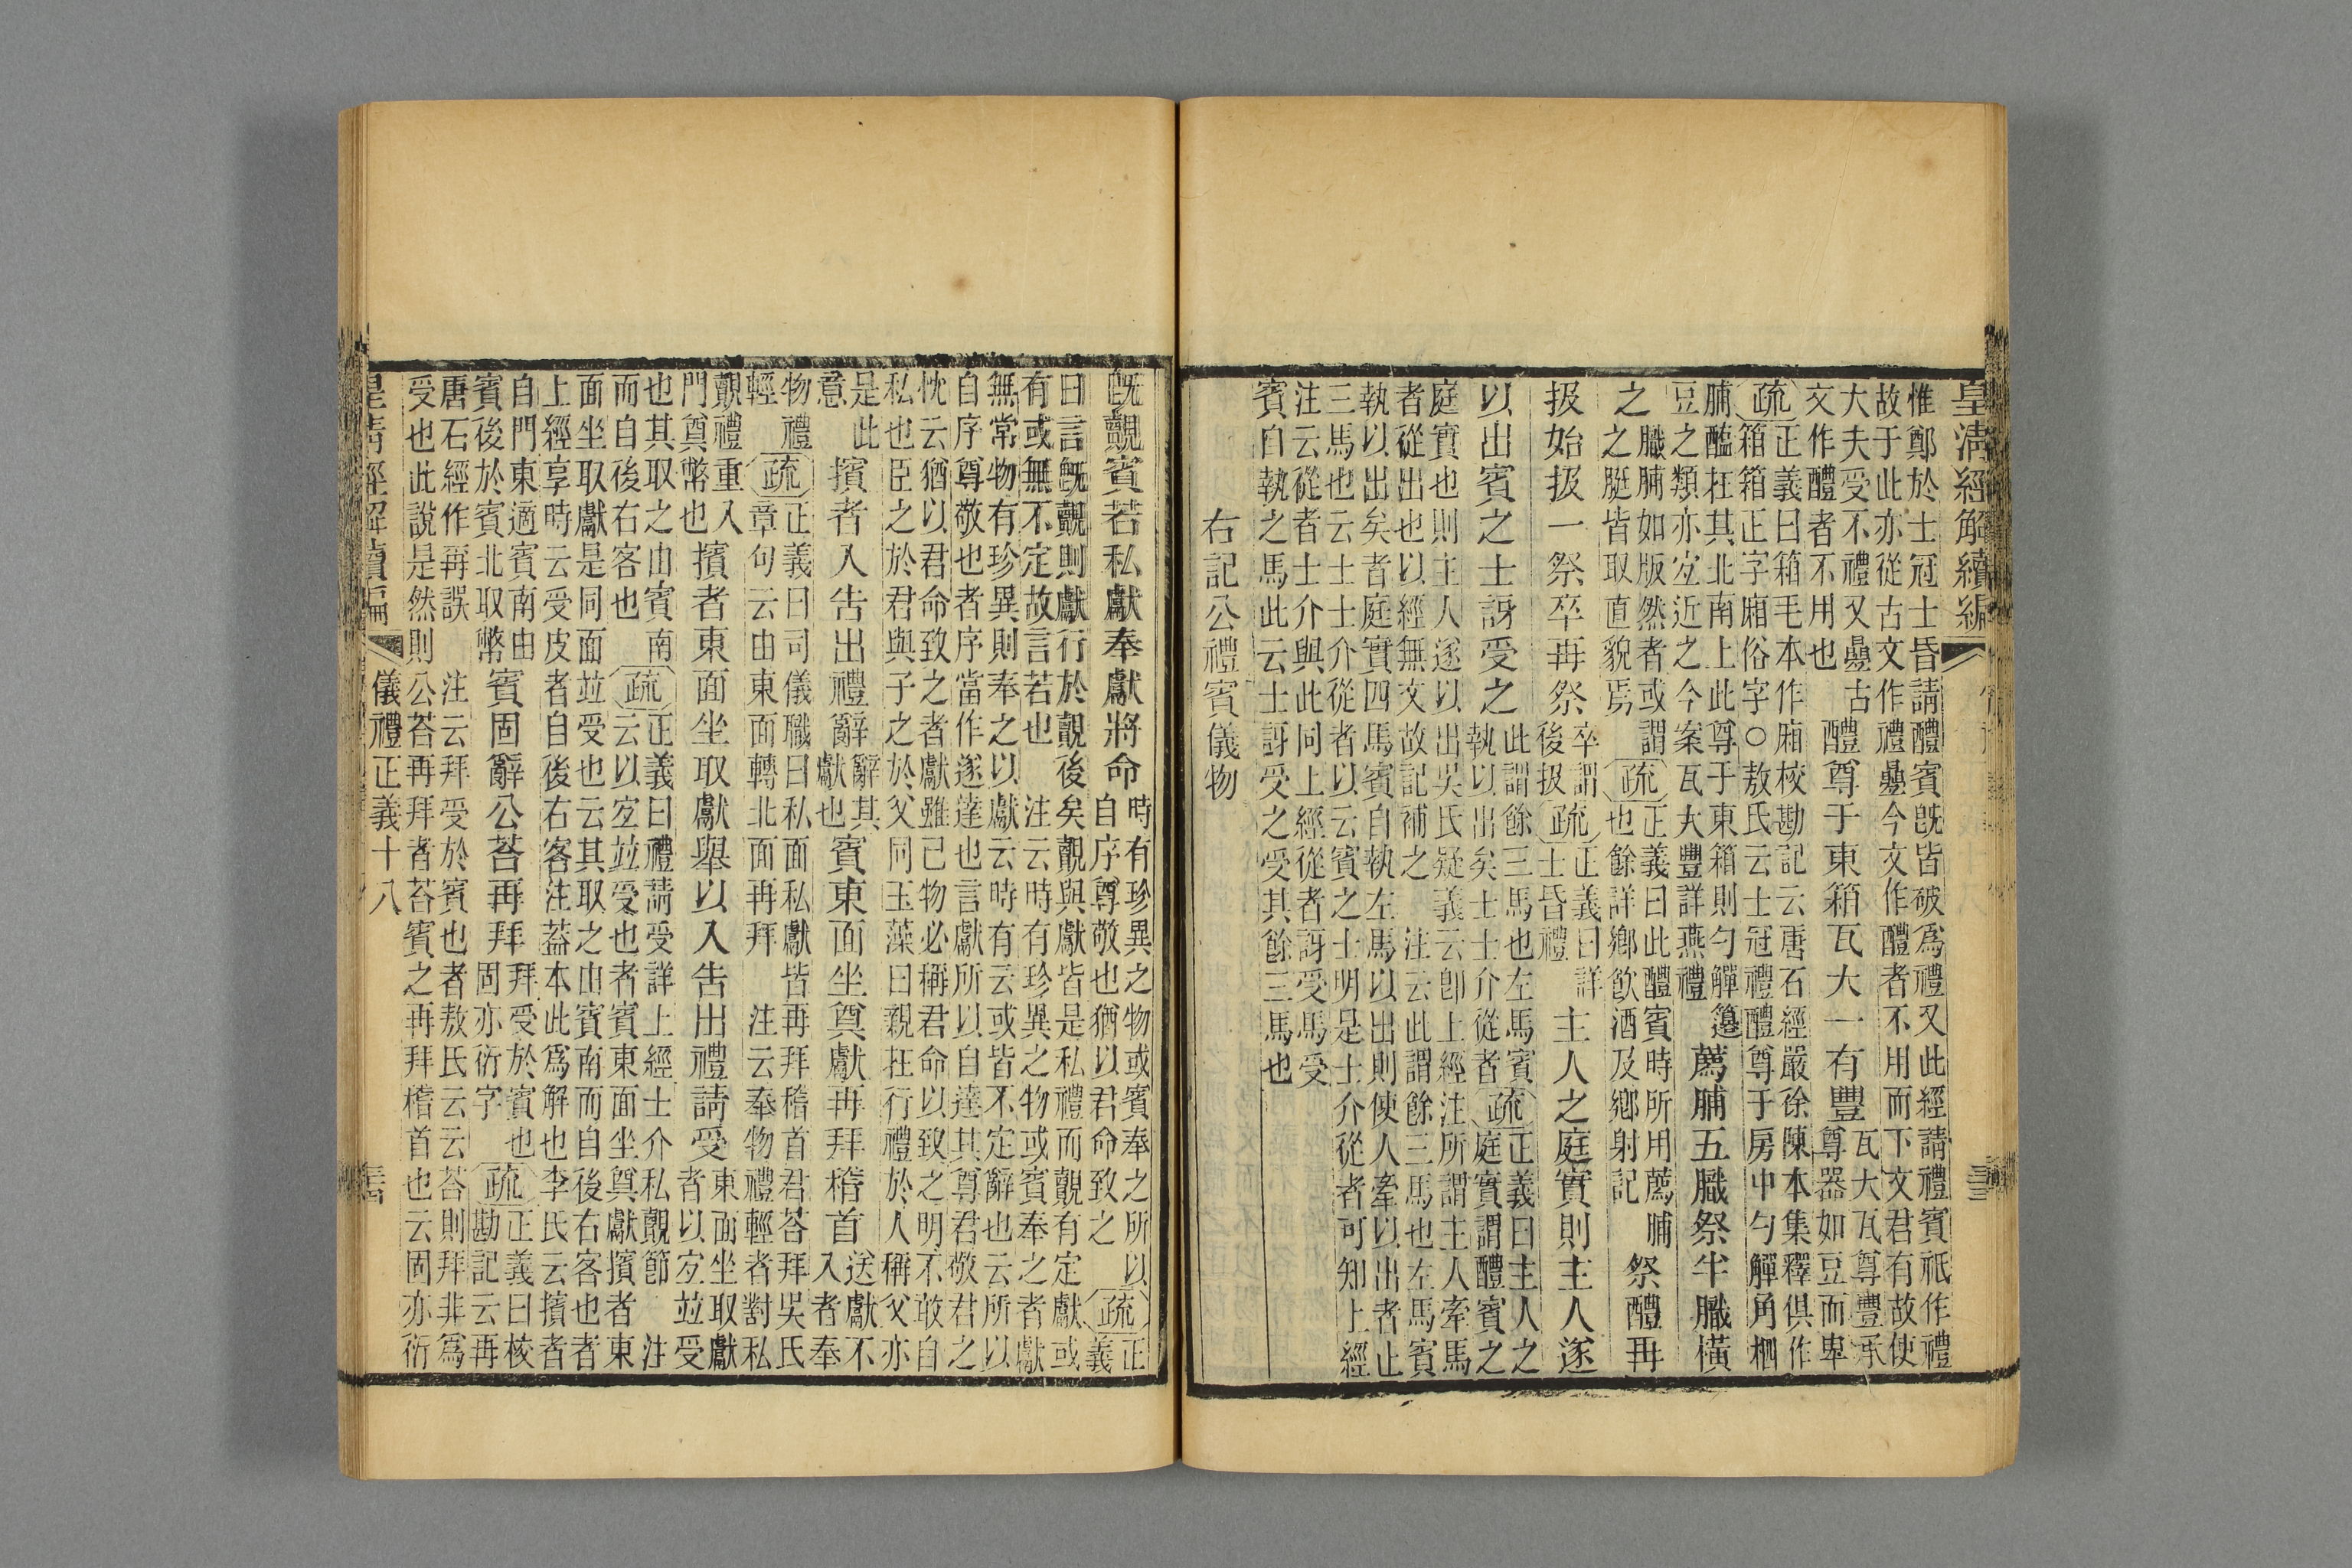 皇清經解續編
惟鄭於士冠士昏請醴賓既皆破爲禮又此經請禮賓祇作禮
故于此亦從古文作禮㲋今文作醴者不用而下文君有故使
大夫受不禮又㲋古
文作醴者不用也
醴尊于東箱瓦大一有豐
瓦大瓦尊豐承
尊器如豆而卑
疏
正義曰箱毛本作廂校勘記云唐石經嚴徐陳本集釋俱作
箱箱正字廂俗字○敖氏云士冠禮醴尊于房中勺觶角柶
脯醢在其北南上此尊于東箱則勺觶籩
豆之類亦宜近之今案瓦大豐詳燕禮
薦脯五膱祭半膱橫
之
膱脯如版然者或謂
之脡皆取直貌焉
疏
正義曰此醴賓時所用薦脯
也餘詳鄉飲酒及鄉射記
祭醴再
扱始扱一祭卒再祭
卒謂
後扱
疏
正義曰詳
士昏禮
主人之庭實則主人遂
以出賓之士訝受之
此謂餘三馬也左馬賓
執以出矣士士介從者
疏
正義曰主人之
庭實謂醴賓之
庭實也則主人遂以出吳氏疑義云卽上經注所謂主人牽馬
者從出也以經無文故記補之 注云此謂餘三馬也左馬賓
執以出矣者庭實四馬賓自執左馬以出則使人牽以出者止
三馬也云士士介從者以云賓之士明是士介從者可知上經
注云從者士介與此同上經從者訝受馬受
賓自執之馬此云士訝受之受其餘三馬也
右記公禮賓儀物
既覿賓若私獻奉獻將命
時有珍異之物或賓奉之所以
自序尊敬也猶以君命致之
疏
正
義
曰言既覿則獻行於覿後矣覿與獻皆是私禮而覿有定獻或
有或無不定故言若也 注云時有珍異之物或賓奉之者獻
無常物有珍異則奉之以獻云時有云或皆不定辭也云所以
自序尊敬也者序當作遂達也言獻所以自達其尊君敬君之
忱云猶以君命致之者獻雖己物必稱君命以致之明不敢自
私也臣之於君與子之於父同玉藻曰親在行禮於人稱父亦
是此
意
擯者入告出禮辭
辭其
獻也
賓東面坐奠獻再拜稽首
送獻不
入者奉
物禮
輕
疏
正義曰司儀職曰私面私獻皆再拜稽首君荅拜吳氏
章句云由東面轉北面再拜 注云奉物禮輕者對私
覿禮重入
門奠幣也
擯者東面坐取獻舉以入告出禮請受
東面坐取獻
者以宜並受
也其取之由賓南
而自後右客也
疏
正義曰禮請受詳上經士介私覿節 注
云以宜並受也者賓東面坐奠獻擯者東
面坐取獻是同面並受也云其取之由賓南而自後右客也者
上經享時云受皮者自後右客注蓋本此爲解也李氏云擯者
自門東適賓南由
賓後於賓北取幣
賓固辭公荅再拜
拜受於賓也
固亦衍字
疏
正義曰校
勘記云再
唐石經作再誤 注云拜受於賓也者敖氏云云荅則拜非爲
受也此說是然則公荅再拜者荅賓之再拜稽首也云固亦衍
皇清經解續編 儀禮正義十八